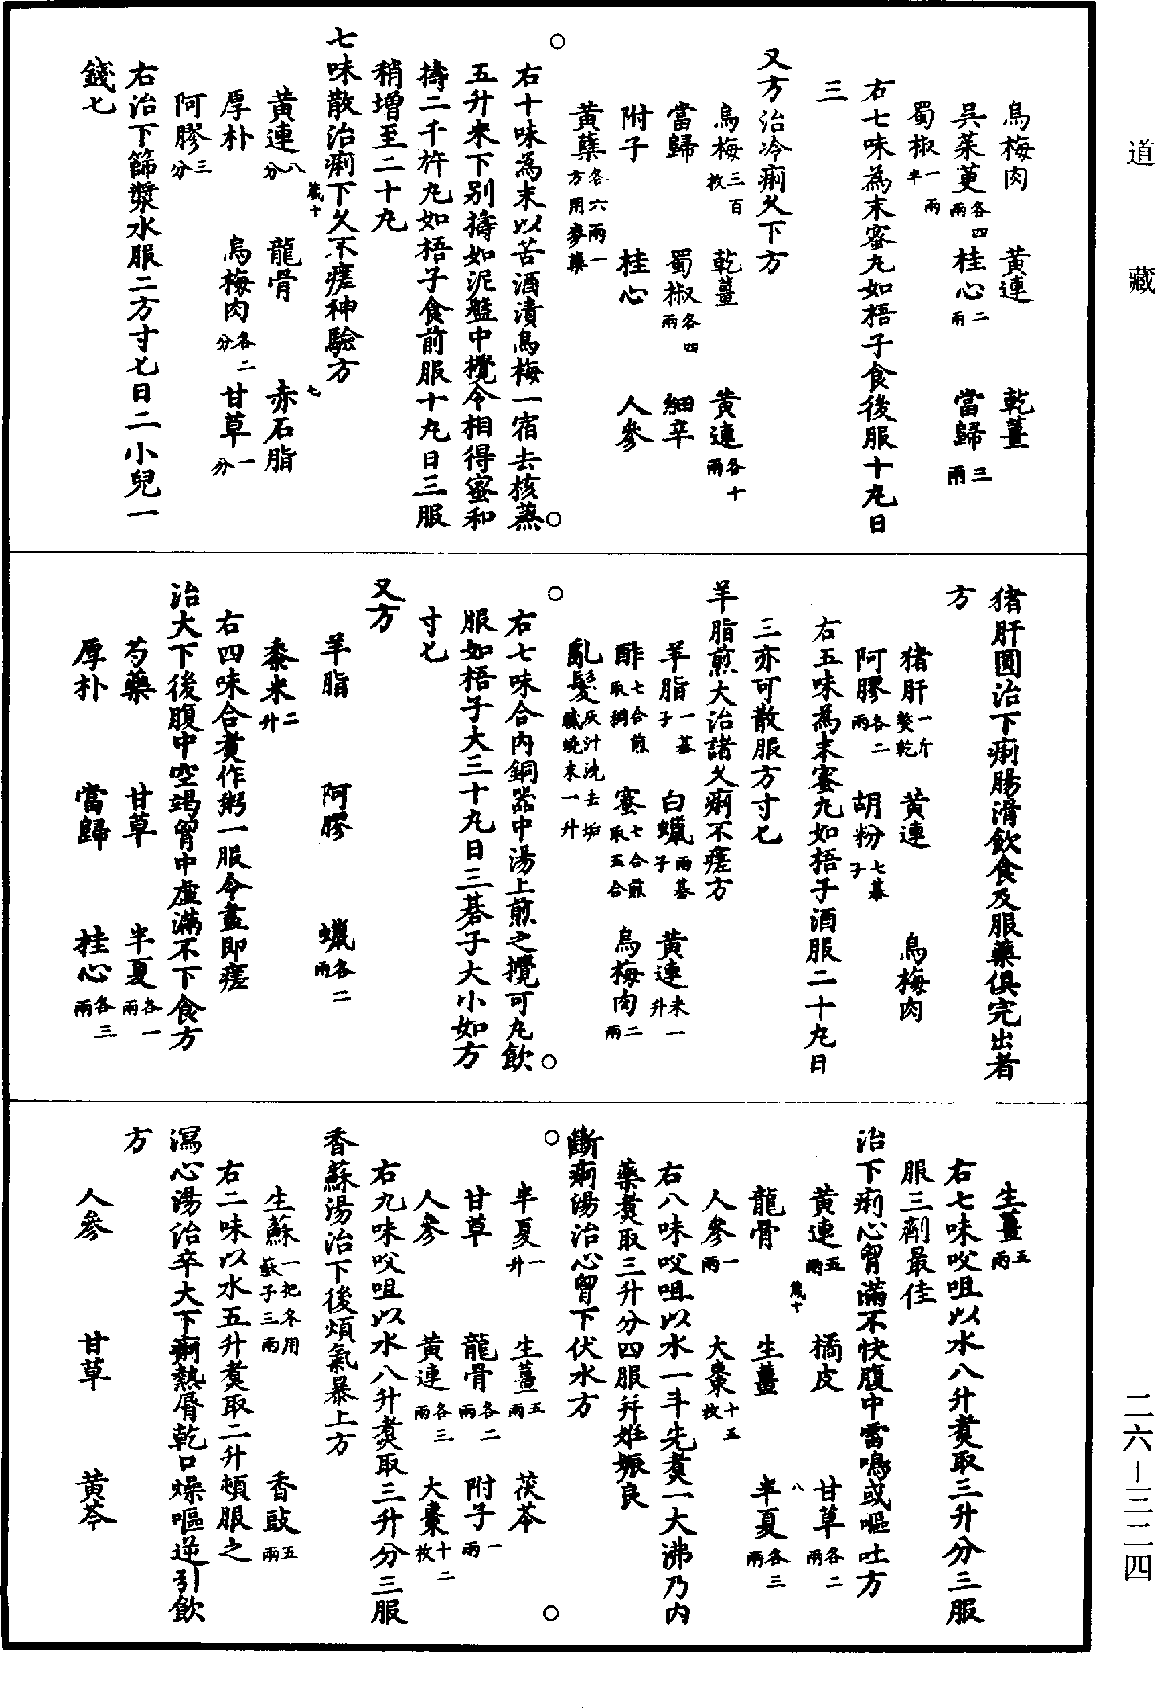 道藏
烏梅肉 黃連 乾薑
吳茱萸各四兩 桂心二兩 當歸三兩
蜀椒一兩半
右七味為末蜜丸如梧子食後服十丸日
三
又方治冷痢久下方
烏梅三百枚 乾薑 黃連各十兩
當歸 蜀椒各四兩 細辛
附子 桂心 人參
黃蘗各六兩一方用麥蘗
右十味為末以苦酒漬烏梅一宿去核蒸
五升米下別擣如泥盤中攪令相得蜜和
擣二千杵丸如梧子食前服十丸日三服
稍增至二十丸
七味散治痢下久不瘥神驗方
黃連八分 龍骨 赤石脂
厚朴 烏梅肉各二分 甘草一分
阿膠三分
右治下篩漿水服二方寸匕日二小兒一
錢匕
箴十 七
猪肝圓治下痢腸滑飲食及服藥俱完出者
方
猪肝一斤熬乾 黃連 烏梅肉
阿膠各二兩 胡粉七棊子
右五味為末蜜丸如梧子酒服二十丸日
三亦可散服方寸匕
羊脂煎大治諸久痢不瘥方
羊脂一棊子 白蠟兩棊子 黃連末一升
酢七合煎取稠 蜜七合煎取五合 烏梅肉二兩
亂髮灰汁洗去垢膩燒末一升
右七味合內銅器中湯上煎之攪可丸飲
服如梧子大三十丸日三棊子大小如方
寸匕
又方
羊脂 阿膠 蠟各二兩
黍米二升
右四味合煑作粥一服令盡即瘥
治大下後腹中空竭胷中虛滿不下食方
芍藥 甘草 半夏各一兩
厚朴 當歸 桂心各三兩
生薑五兩
右七味㕮咀以水八升煑取三升分三服
服三劑最佳
治下痢心胷滿不快腹中雷鳴或嘔吐方
黃連五兩 橘皮 甘草各二兩
龍骨 生薑 半夏各三兩
人參一兩 大棗十五枚
箴十 八
右八味㕮咀以水一斗先煑一大沸乃內
藥煑取三升分四服并妊娠良
斷痢湯治心胷下伏水方
半夏一升 生薑五兩 茯苓
甘草 龍骨各二兩 附子一兩
人參 黃連各三兩 大棗十二枚
右九味㕮咀以水八升煑取三升分三服
香蘇湯治下後煩氣暴上方
生蘇一把冬用蘇子三兩 香豉五兩
右二味以水五升煑取二升頓服之
瀉心湯治卒大下痢熱脣乾口燥嘔逆引飲
方
人參 甘草 黃芩
二六—三二四